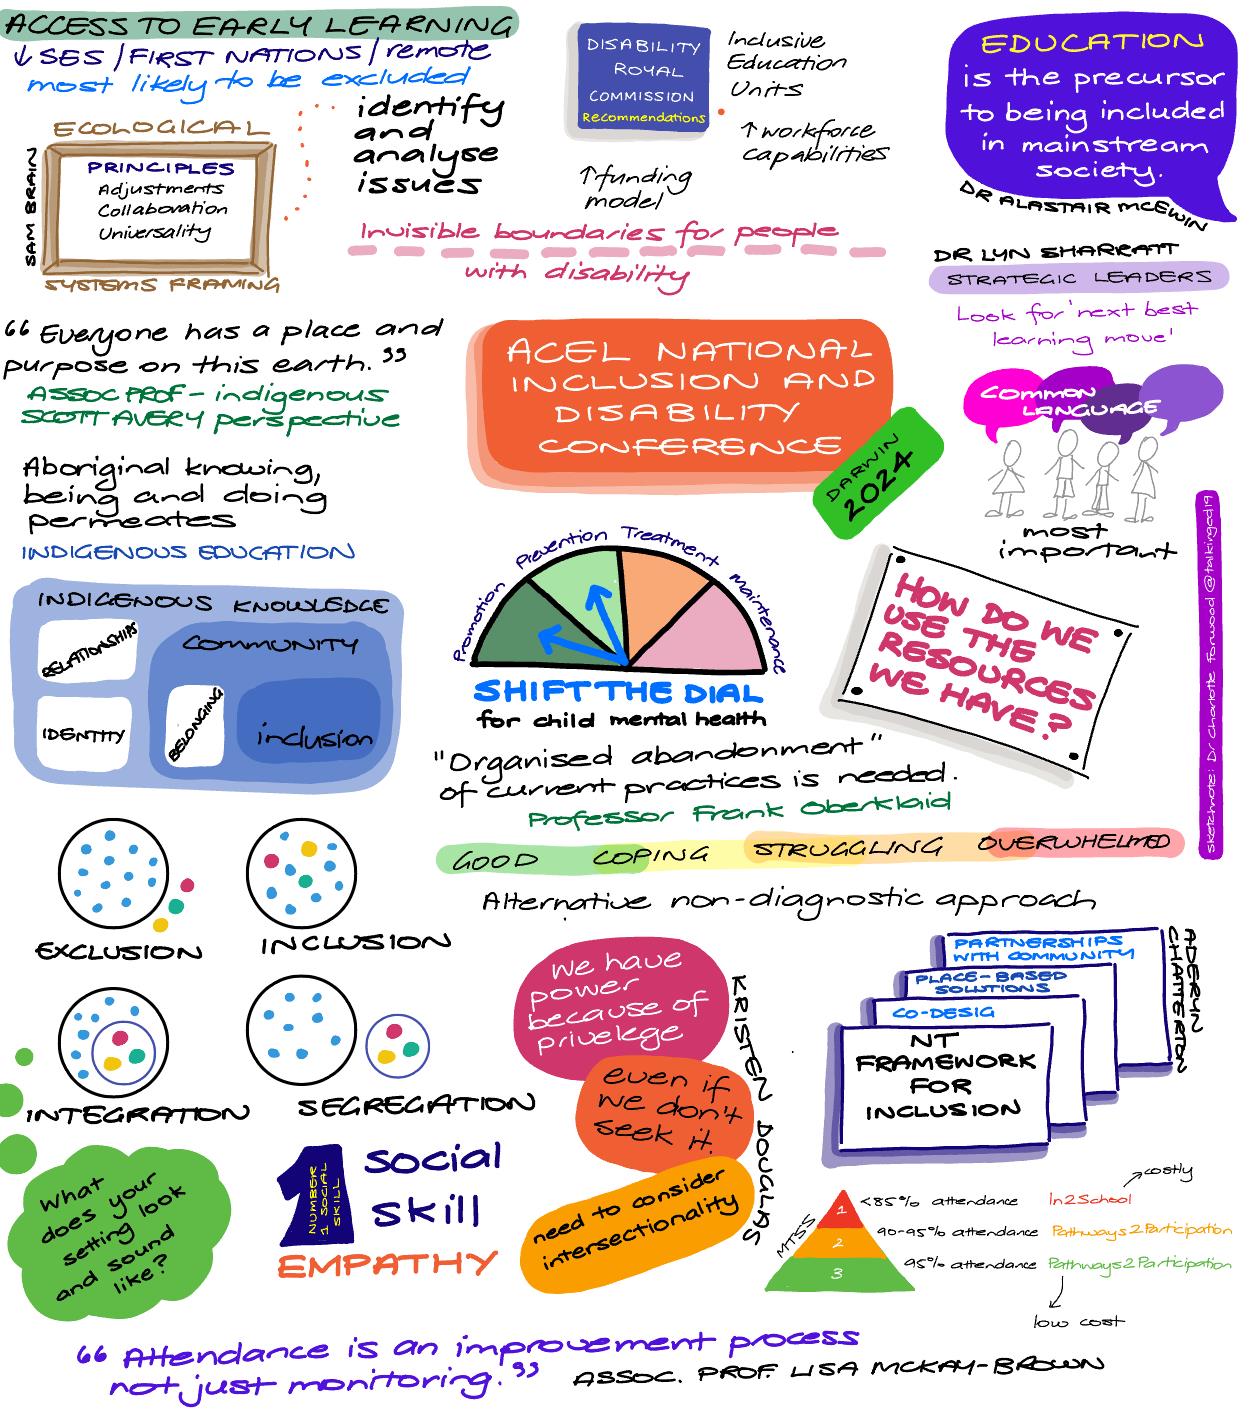 ACCESS TO EARLY LEARNING
↓ SES / FIRST NATIONS / remote
most likely to be excluded
ECOLOGICAL
SAM BRAIN
PRINCIPLES
Adjustments
Collaboration
Universality
SYSTEMS FRAMING
identify
and
analyse
issues
DISABILITY
ROYAL
COMMISSION
Recommendations
Inclusive
Education
Units
↑ workforce
capabilities
↑ funding
model
Invisible boundaries for people
with disability
EDUCATION
is the precursor
to being included
in mainstream
society.
DR ALASTAIR MCEWIN
DR LYN SHARRATT
STRATEGIC LEADERS
Look for 'next best
learning move'
COMMON
LANGUAGE
most
important
“ Everyone has a place and
purpose on this earth. ”
ASSOC PROF - indigenous
SCOTT AVERY perspective
Aboriginal knowing,
being and doing
permeates
INDIGENOUS EDUCATION
INDIGENOUS KNOWLEDGE
RELATIONSHIPS
COMMUNITY
IDENTITY
BELONGING
inclusion
ACEL NATIONAL
INCLUSION AND
DISABILITY
CONFERENCE
DARWIN
2024
Promotion
Prevention
Treatment
Maintenance
SHIFT THE DIAL
for child mental health
HOW DO WE
USE THE
RESOURCES
WE HAVE?
sketchnote: Dr Charlotte Forwood @talkinged19
"Organised abandonment"
of current practices is needed.
Professor Frank Oberklaid
GOOD COPING STRUGGLING OVERWHELMED
Alternative non-diagnostic approach
EXCLUSION
INCLUSION
INTEGRATION
SEGREGATION
We have
power
because of
privelege
even if
we don't
seek it.
need to consider
intersectionality
KRISTEN DOUGLAS
PARTNERSHIPS
WITH COMMUNITY
PLACE-BASED
SOLUTIONS
CO-DESIG
NT
FRAMEWORK
FOR
INCLUSION
ADERYN
CHATTERTON
What
does your
setting look
and sound
like?
1
NUMBER
1 SOCIAL
SKILL
Social
skill
EMPATHY
MTSS
costly
1 <85% attendance In2School
2 90-95% attendance Pathways2Participation
3 95% attendance Pathways2Participation
low cost
“ Attendance is an improvement process
not just monitoring. ” ASSOC. PROF. LISA MCKAY-BROWN